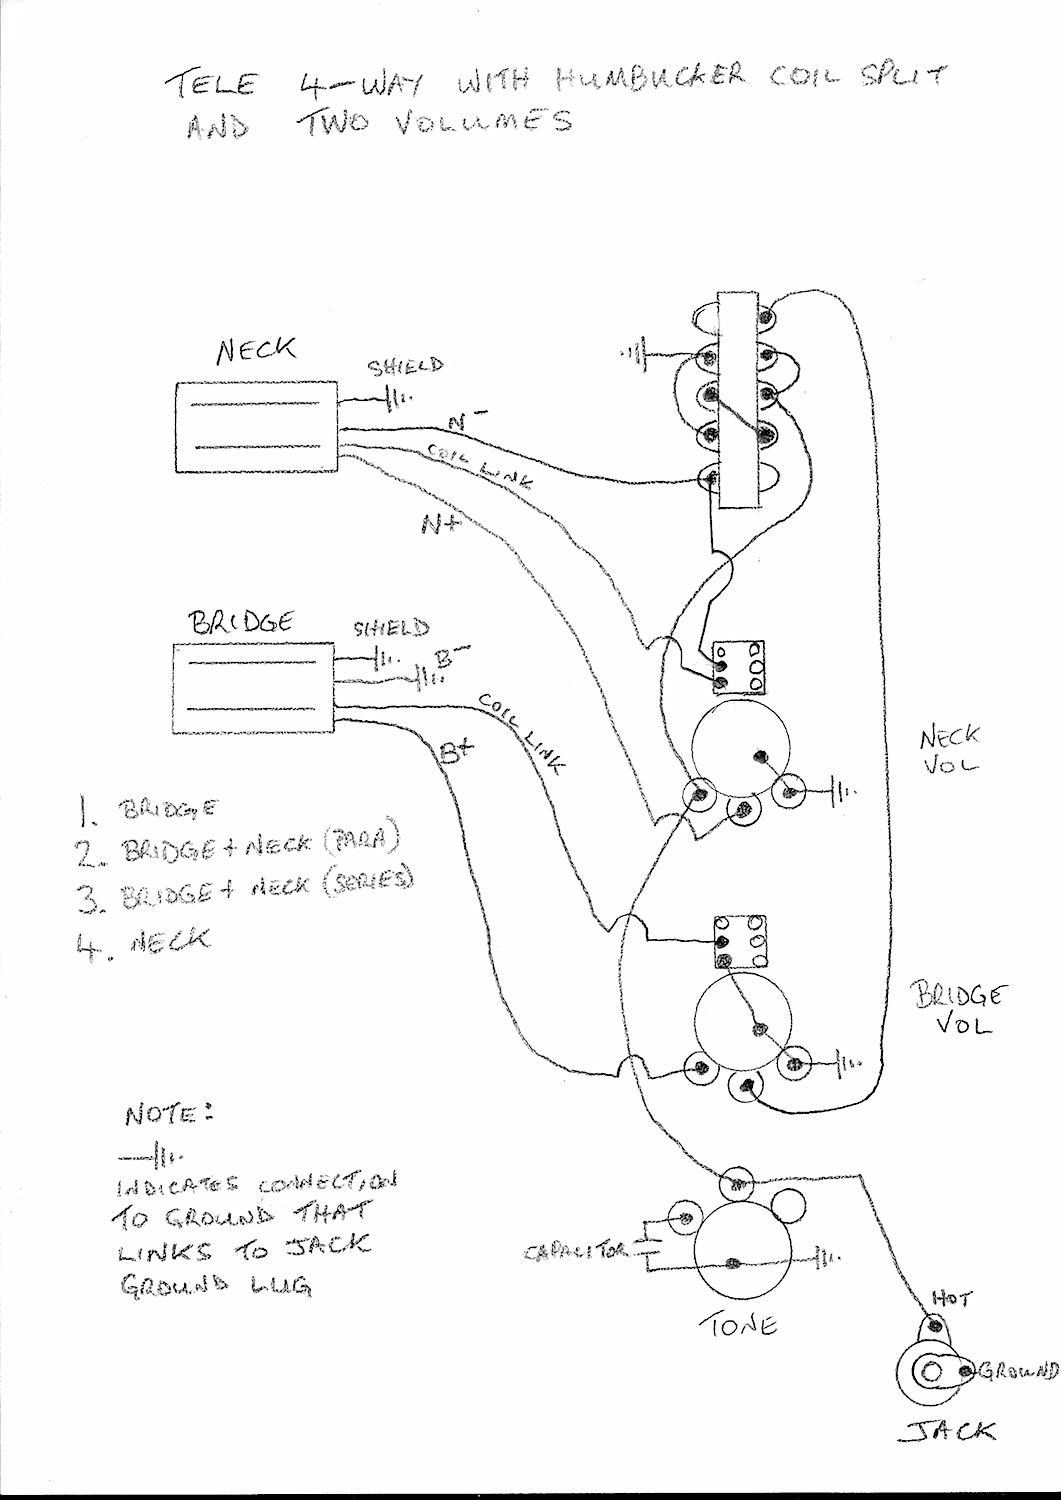 TELE 4-WAY WITH HUMBUCKER COIL SPLIT
AND TWO VOLUMES
NECK
SHIELD
N-
COIL LINK
N+
BRIDGE
SHIELD
B-
COIL LINK
B+
NECK
VOL
1. BRIDGE
2. BRIDGE + NECK (PARA)
3. BRIDGE + NECK (SERIES)
4. NECK
BRIDGE
VOL
NOTE:
INDICATES CONNECTION
TO GROUND THAT
LINKS TO JACK
GROUND LUG
CAPACITOR
TONE
HOT
GROUND
JACK